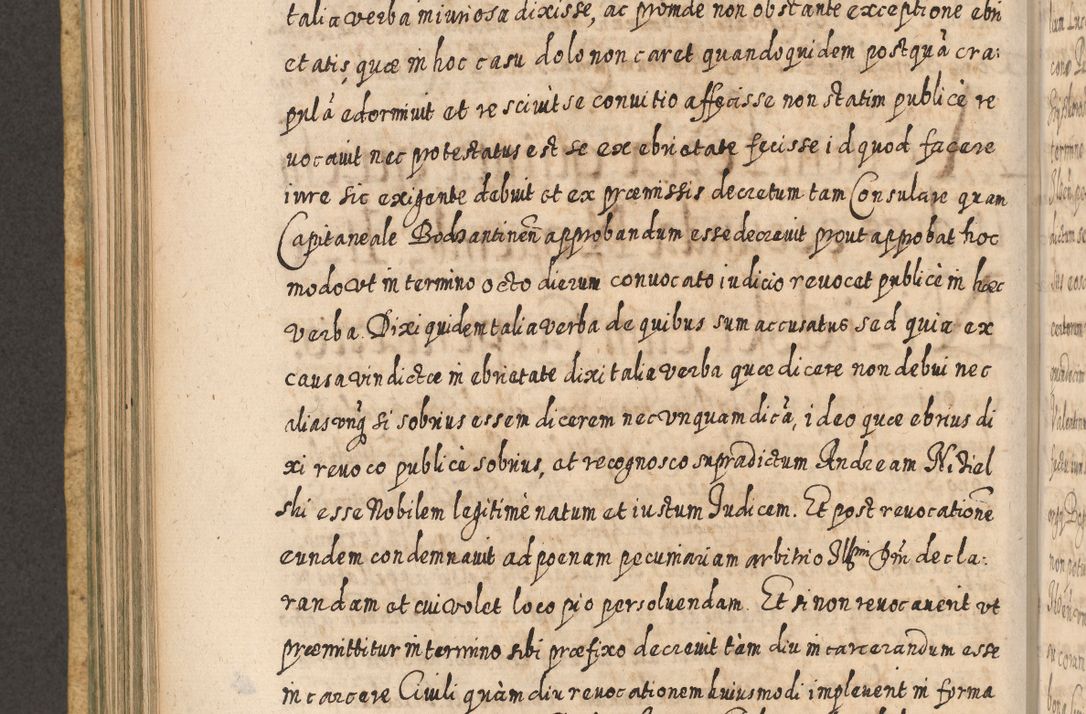 talia verba iniuriosa dixisse, ac proinde non obstante exceptione ebri
etatis, quæ in hoc casu dolo non caret quandoquidem postquã cra:
pulã edormiuit et resciuit se conuitio affecisse non statim publicè re
uocauit nec protestatus est se ex ebrietate fecisse id quod facere
iure sic exigente debuit et ex præmissis decretum tam Consulare quam
Capitaneale Bodzantineñ approbandum esse decreuit prout approbat hoc
modo vt in termino octo dierum conuocato iudicio reuocet publicè in hæc
verba. Dixi quidem talia verba de quibus sum accusatus sed quia ex
causa vindictæ in ebrietate dixi talia verba quæ dicere non debui nec
alias vnq̃ si sobrius essem dicerem nec vnquam dicã, ideo quæ ebrius di
xi reuoco publicè sobrius, et recognosco supradictum Andream Nidziel
ski esse Nobilem legitimè natum et iustum Iudicem. Et post reuocationẽ
eundem condemnauit ad pœnam pecuniariam arbitrio Illmi Dñi decla:
randam et cui volet loco pio persoluendam. Et si non reuocauerit vt
præmittitur in termino sibi præfixo decreuit tàm diu in carcerandum esse
in carcere Ciuili quàm diu reuocationem huiusmodi impleuerit in forma